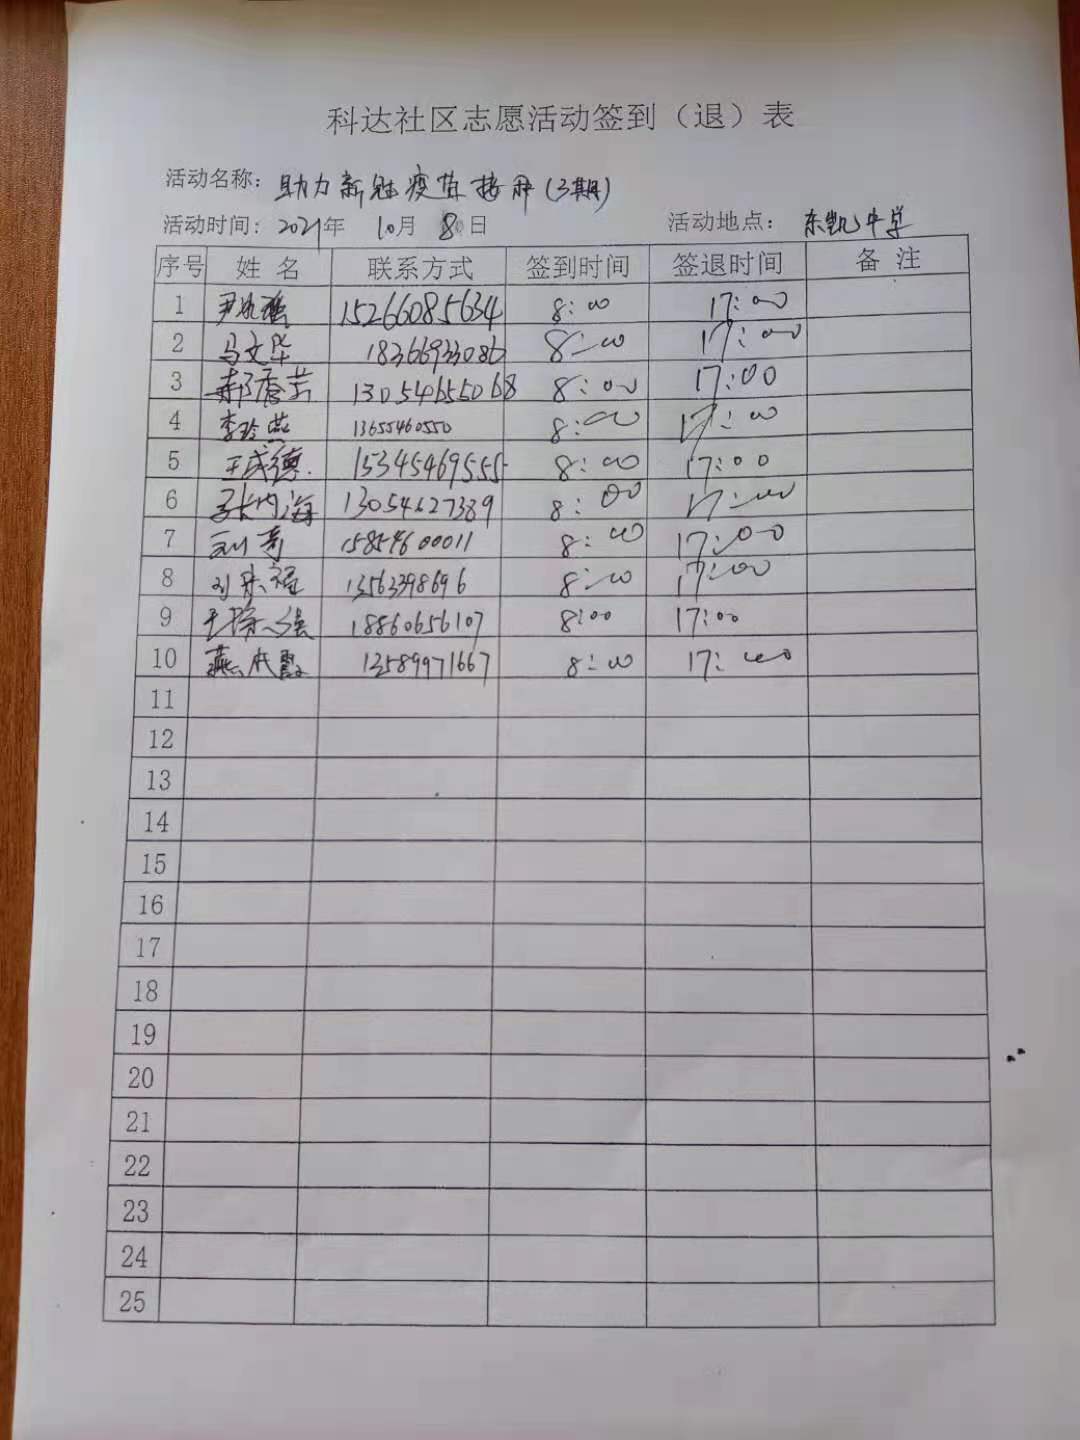 科达社区志愿活动签到（退）表
活动名称：助力新冠疫苗接种(3期)
活动时间：2021年 10月 8日 活动地点：东凯中学
序号 姓名 联系方式 签到时间 签退时间 备注
1 15266085634 8:00 17:00
2 马文华 18366933086 8:00 17:00
3 郝秀芳 13054655068 8:00 17:00
4 李玲燕 13655460550 8:00 17:00
5 王成德 15345469555 8:00 17:00
6 13054627389 8:00 17:00
7 刘青 15854600011 8:00 17:00
8 1356339869 6 8:00 17:00
9 18860656107 8:00 17:00
10 13589971667 8:00 17:00
11
12
13
14
15
16
17
18
19
20
21
22
23
24
25